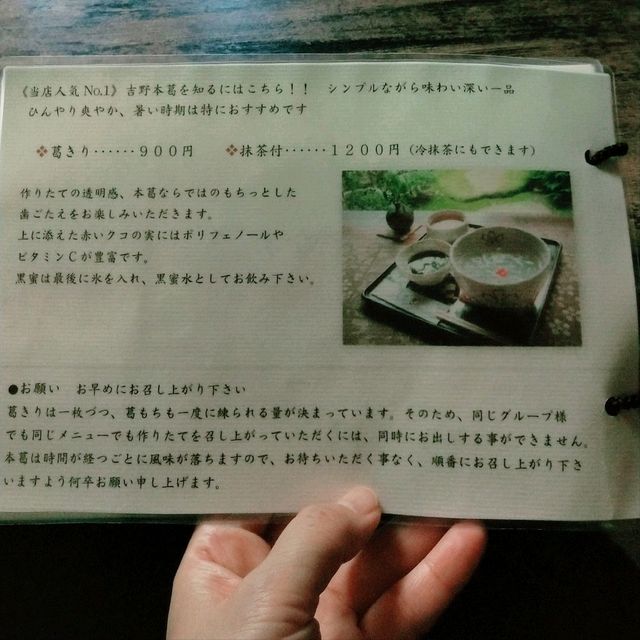 《当店人気 No.1》 吉野本葛を知るにはこちら！！　シンプルながら味わい深い一品
ひんやり爽やか、暑い時期は特におすすめです
❖葛きり‥‥‥９００円　❖抹茶付‥‥‥１２００円（冷抹茶にもできます）
作りたての透明感、本葛ならではのもちっとした
歯ごたえをお楽しみいただきます。
上に添えた赤いクコの実にはポリフェノールや
ビタミンＣが豊富です。
黒蜜は最後に氷を入れ、黒蜜水としてお飲み下さい。
●お願い　お早めにお召し上がり下さい
葛きりは一枚づつ、葛もちも一度に練られる量が決まっています。そのため、同じグループ様
でも同じメニューでも作りたてを召し上がっていただくには、同時にお出しする事ができません。
本葛は時間が経つごとに風味が落ちますので、お待ちいただく事なく、順番にお召し上がり下さ
いますよう何卒お願い申し上げます。